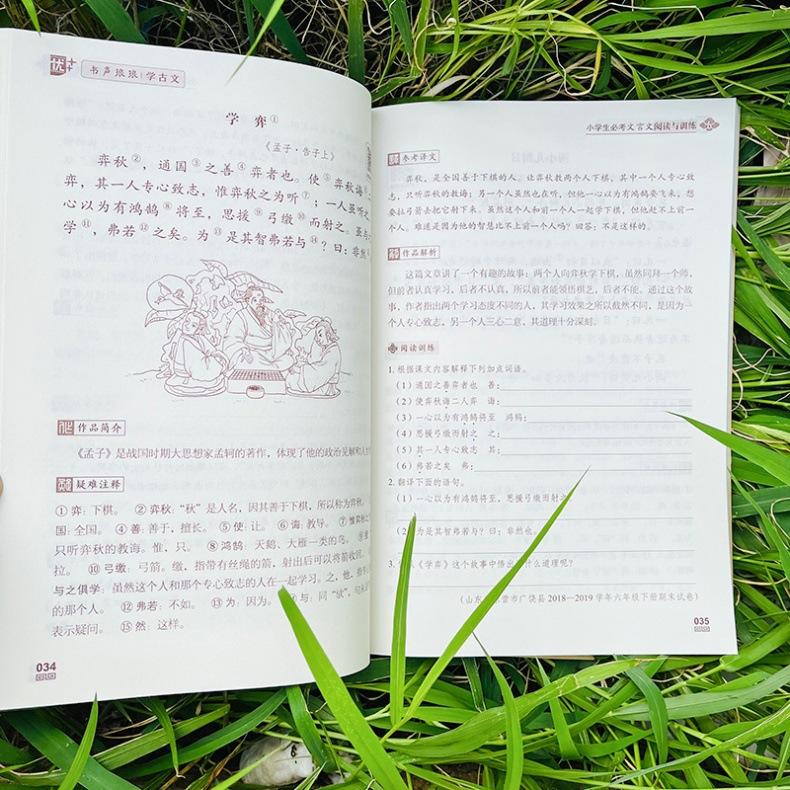 优+ 书声琅琅 学古文
学 弈①
《孟子·告子上》
弈秋②，通国③之善④弈者也。使⑤弈秋诲⑥二
弈，其一人专心致志，惟弈秋之为听⑦；一人虽听之
心以为有鸿鹄⑧将至，思援⑨弓缴⑩而射之。虽与
学⑪，弗若⑫之矣。为⑬是其智弗若与⑭？曰：非然
作品简介
《孟子》是战国时期大思想家孟轲的著作，体现了他的政治见解和
疑难注释
① 弈：下棋。 ② 弈秋：“秋”是人名，因其善于下棋，所以称为弈秋。
国：全国。 ④ 善：善于，擅长。 ⑤ 使：让。 ⑥ 诲：教导。 ⑦ 惟弈秋
只听弈秋的教诲。惟，只。 ⑧ 鸿鹄：天鹅、大雁一类的鸟。
拉。 ⑩ 弓缴：弓箭。缴，指带有丝绳的箭，射出后可以将箭收回。
与之俱学：虽然这个人和那个专心致志的人在一起学习。之，他，指
的那个人。 ⑫ 弗若：不如。 ⑬ 为：因为。 与：同“欤”，句末
表示疑问。 ⑮ 然：这样。
034
小学生必考文言文阅读与训练
参考译文
弈秋，是全国善于下棋的人。让弈秋教两个人下棋，其中一个人专心致
志，只听弈秋的教诲；另一个人虽然也在听，但他一心以为有鸿鹄要飞来，想
要拉弓箭去把它射下来。虽然这个人和前一个人一起学下棋，但他赶不上前一
个人。难道是因为他的智慧比不上前一个人吗？回答：不是这样的。
作品解析
这篇文章讲了一个有趣的故事：两个人向弈秋学下棋，虽然同拜一个师，
但前者认真学习，后者不认真，所以前者能领悟棋艺，后者不能。通过这个故
事，作者指出两个学习态度不同的人，其学习效果之所以截然不同，是因为一
个人专心致志，另一个人三心二意，其道理十分深刻。
阅读训练
1. 根据课文内容解释下列加点词语。
（1）通国之善弈者也 善：
（2）使弈秋诲二人弈 诲：
（3）一心以为有鸿鹄将至 鸿鹄：
（4）思援弓缴而射之 之：
（5）其一人专心致志 其：
（6）弗若之矣 弗：
2. 翻译下面的语句。
（1）一心以为有鸿鹄将至，思援弓缴而射之。
（2）为是其智弗若与？曰：非然也。
3. 从《学弈》这个故事中悟出什么道理呢？
（山东 营市广饶县 2018—2019 学年六年级下册期末试卷）
035